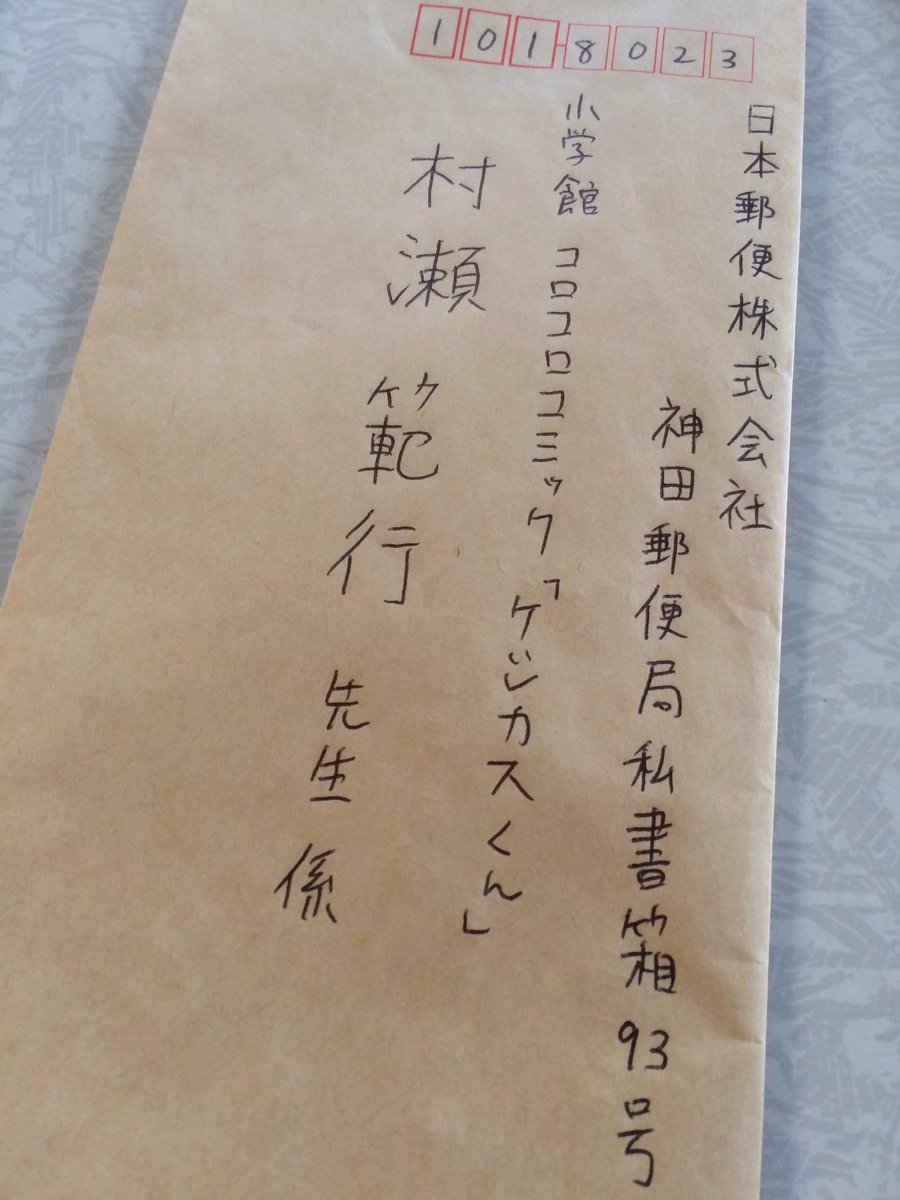 1018023
日本郵便株式会社
神田郵便局私書箱93号
小学館 コロコロコミック「ケシカスくん」
村瀬範行 先生係